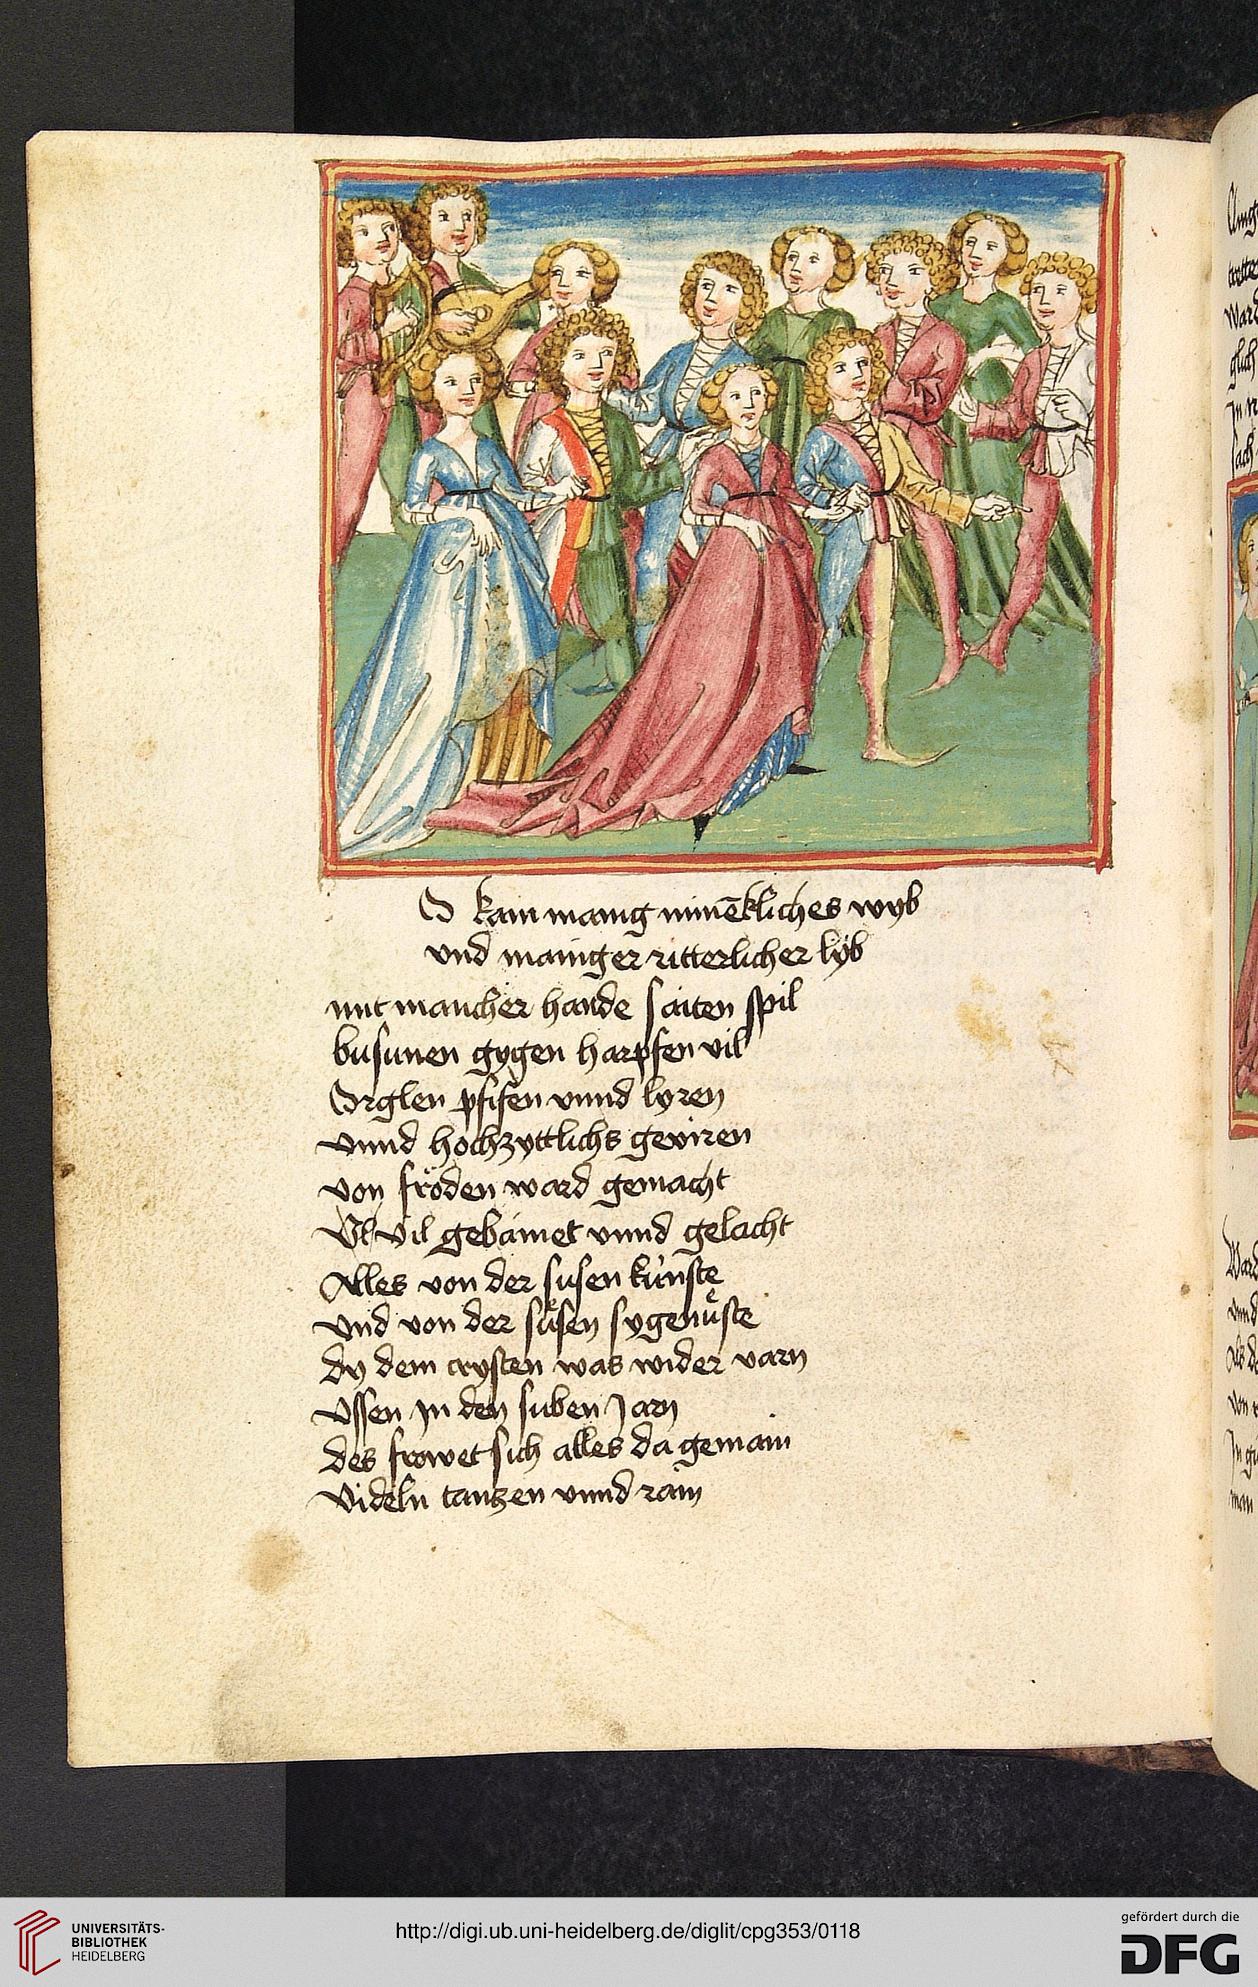 O kam manig minēkliches wyb
vnd mainiger ritterlicher lyb
mit mancher hande saiten spil
busunen gygen harpfen vil
Orglen pfifen vnnd lyren
vnnd hochzyttlichs gexiren
von fröden ward gemacht
vil gebainet vnnd gelacht
Alles von der susen künste
vnd von der süsen sygenüste
dy dem crysten was wider varn
vssen jn den suben Jarn
des frowet sich alles da gemain
videln tanzen vnnd rain
UNIVERSITÄTS-
BIBLIOTHEK
HEIDELBERG
http://digi.ub.uni-heidelberg.de/diglit/cpg353/0118
gefördert durch die
DFG